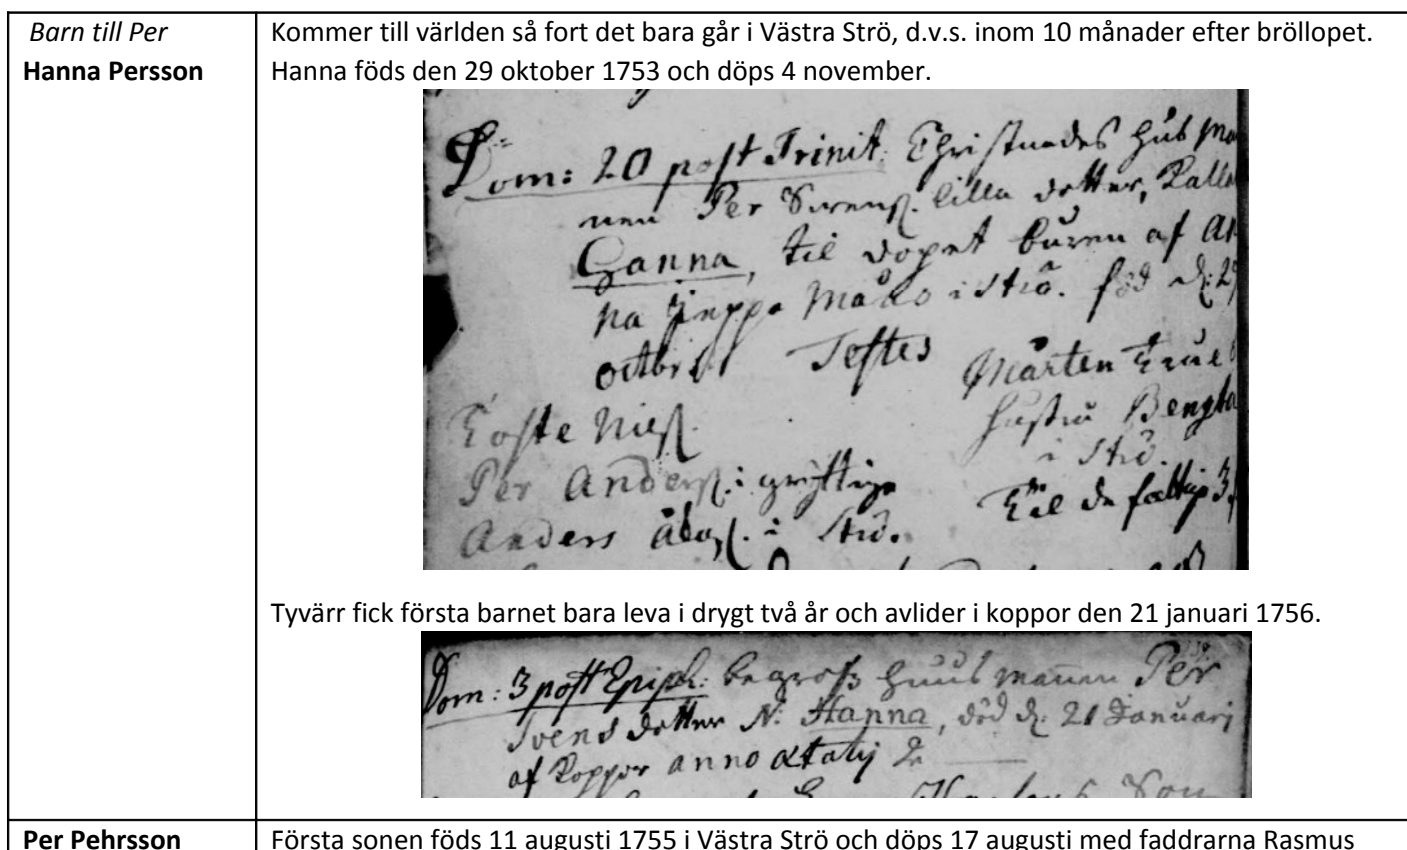 Barn till Per
Hanna Persson
Kommer till världen så fort det bara går i Västra Strö, d.v.s. inom 10 månader efter bröllopet.
Hanna föds den 29 oktober 1753 och döps 4 november.
Dom: 20 post Trinit: Christnades hus ma
nen Per Svens. lilla dotter, kalla
Hanna, til dopet buren af An
na Jeppa Måns i Strö. född d: 29
octbris Testes Mårten
Toste Nils. hustru Bengta
i Strö.
Per Anders. i
Anders Åkes. i Strö. Til de fattiga 3
Tyvärr fick första barnet bara leva i drygt två år och avlider i koppor den 21 januari 1756.
Dom: 3 post Epiph: begrofs huus mannen Per
Svens dotter N: Hanna, död d: 21 Januarij
af Koppor anno ætatij 2
Per Pehrsson
Första sonen föds 11 augusti 1755 i Västra Strö och döps 17 augusti med faddrarna Rasmus